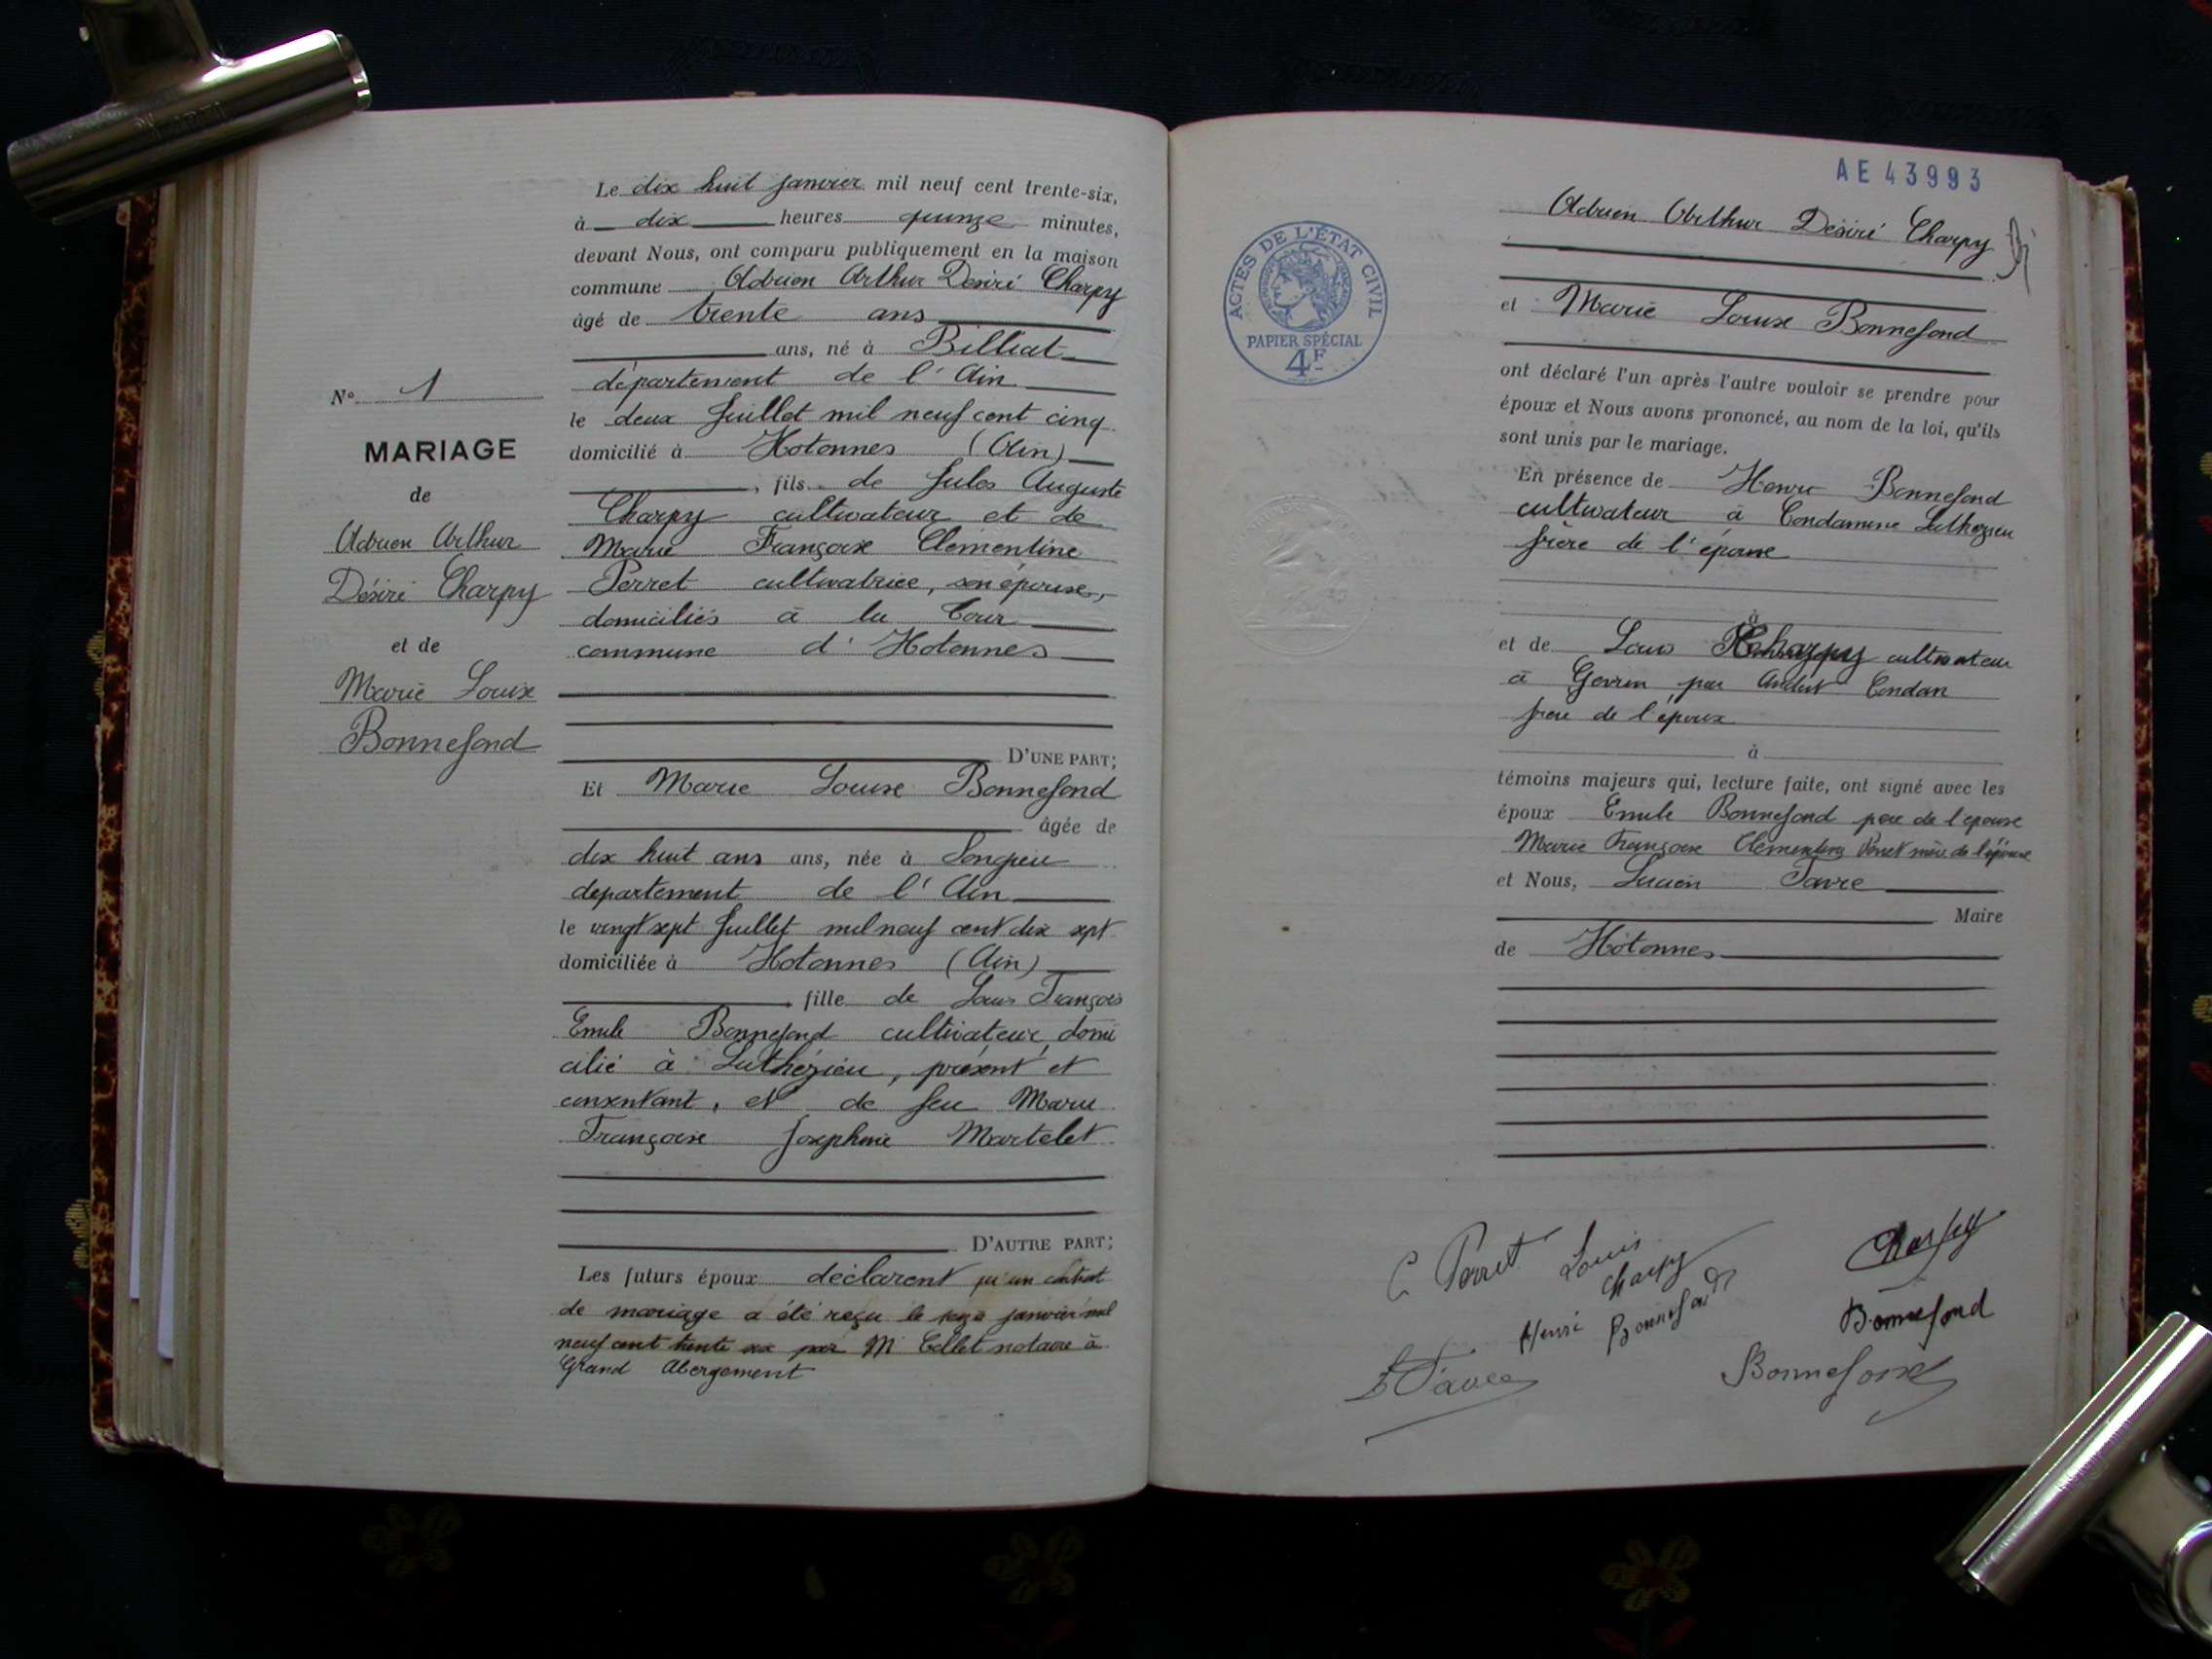 Le dix huit janvier mil neuf cent trente-six,
à dix heures quinze minutes,
devant Nous, ont comparu publiquement en la maison
commune Adrien Arthur Désiré Charpy
âgé de trente ans
ans, né à Billiat
département de l'Ain
le deux Juillet mil neuf cent cinq
domicilié à Hotonnes (Ain)
, fils de Jules Auguste
Charpy cultivateur et de
Marie Françoise Clémentine
Perret cultivatrice, son épouse,
domiciliés à la Cour
commune d'Hotonnes
D'UNE PART;
Et Marie Louise Bonnefond
âgée de
dix huit ans ans, née à Songieu
département de l'Ain
le vingt sept Juillet mil neuf cent dix sept
domiciliée à Hotonnes (Ain)
, fille de Louis François
Emile Bonnefond cultivateur, domi
cilié à Luthézieu, présent et
consentant, et de feu Marie
Françoise Joséphine Martelet
D'AUTRE PART;
Les futurs époux déclarent qu'un contrat
de mariage a été reçu le seize janvier mil
neuf cent trente six par M Collet notaire à
Grand Abergement
N° 1
MARIAGE
de
Adrien Arthur
Désiré Charpy
et de
Marie Louise
Bonnefond
AE 43993
ACTES DE L'ÉTAT CIVIL
PAPIER SPÉCIAL
4F
Adrien Arthur Désiré Charpy
et Marie Louise Bonnefond
ont déclaré l'un après l'autre vouloir se prendre pour
époux et Nous avons prononcé, au nom de la loi, qu'ils
sont unis par le mariage.
En présence de Henri Bonnefond
cultivateur à Condamine Luthézieu
frère de l'épouse
à
et de Louis Charpy cultivateur
à Gevrin par Condan
frère de l'époux
à
témoins majeurs qui, lecture faite, ont signé avec les
époux Emile Bonnefond père de l'épouse
Marie Françoise Clémentine Perret mère de l'époux
et Nous, Lucien Favre
Maire
de Hotonnes
C Perret
Louis
Charpy
Charpy
Henri Bonnefond
Bonnefond
L Favre
Bonnefond